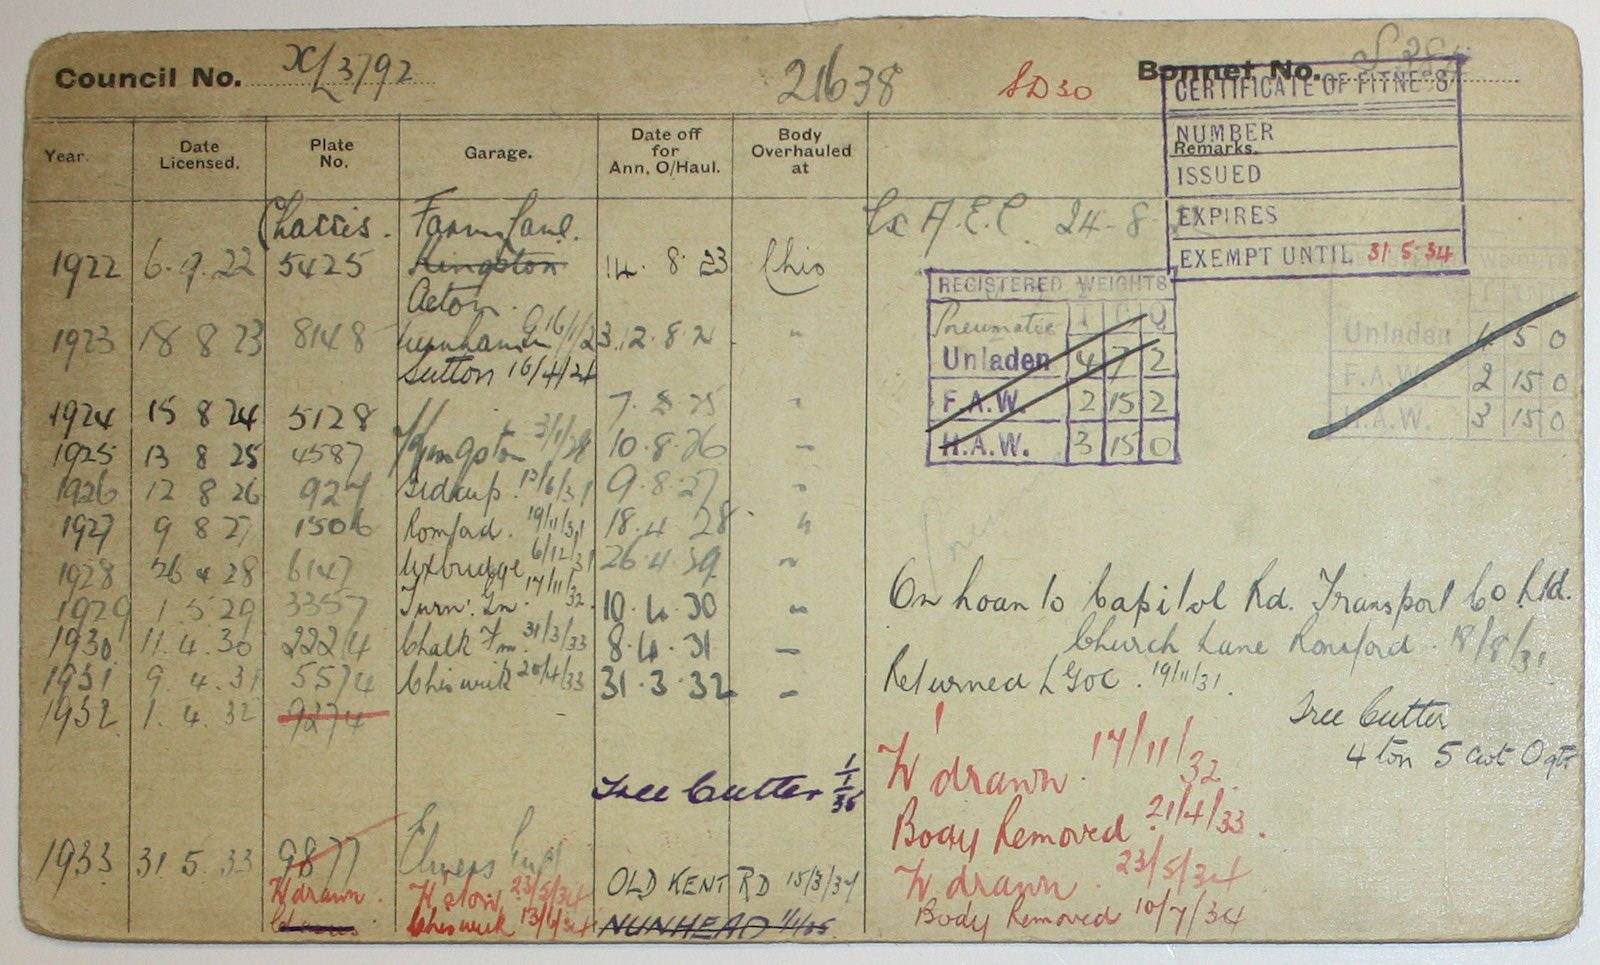 Council No. XL 3792 21638 SD30 Bonnet No.
CERTIFICATE OF FITNESS
NUMBER
Remarks.
ISSUED
EXPIRES
EXEMPT UNTIL 31·5·34
Year. Date Licensed. Plate No. Garage. Date off for Ann. O/Haul. Body Overhauled at
Chassis. Farm Lane. Ex A.E.C. 24-8-
1922 6.9.22 5425 Kingston 14.8.23 Chis
Acton.
1923 18 8 23 8148 16/1/23 12.8.2 "
Sutton 16/4/24
1924 15 8 24 5128 7.8.25 "
1925 13 8 25 4587 Kingston 3/1/28 10.8.26 "
1926 12 8 26 927 Sidcup. 13/6/31 9.8.27 "
1927 9 8 27 1506 Romford. 19/11/31 18.4 28 "
1928 26 4 28 6147 Uxbridge 6/12/31 26.4.29 "
1929 1.5.29 3357 Turn. Gn. 17/11/32. 10.4.30 "
1930 11.4.30 2224 Chalk Fm. 31/3/33 8.4.31 "
1931 9.4.31 5574 Chiswick 20/4/33 31.3.32 "
1932 1.4.32 9274
REGISTERED WEIGHTS
Pneumatic T C Q
Unladen 4 7 2
F.A.W. 2 15 2
H.A.W. 3 15 0
REGISTERED WEIGHTS
Unladen 4 5 0
F.A.W. 2 15 0
H.A.W. 3 15 0
On Loan to Capitol Rd. Transport Co Ltd.
Church Lane Romford. 18/8/31
Returned LGOC. 19/11/31.
Tree Cutter
4 ton 5 cwt 0 qtr
W'drawn. 17/11/32
Tree Cutter 1/1/35
Body Removed 21/4/33.
1933 31.5.33 9877
W'drawn. 23/5/34
W'drawn. W'stow, 23/5/34 OLD KENT RD 15/3/34
Body Removed 10/7/34
Chiswick 13/6/34 NUNHEAD 1/1/35